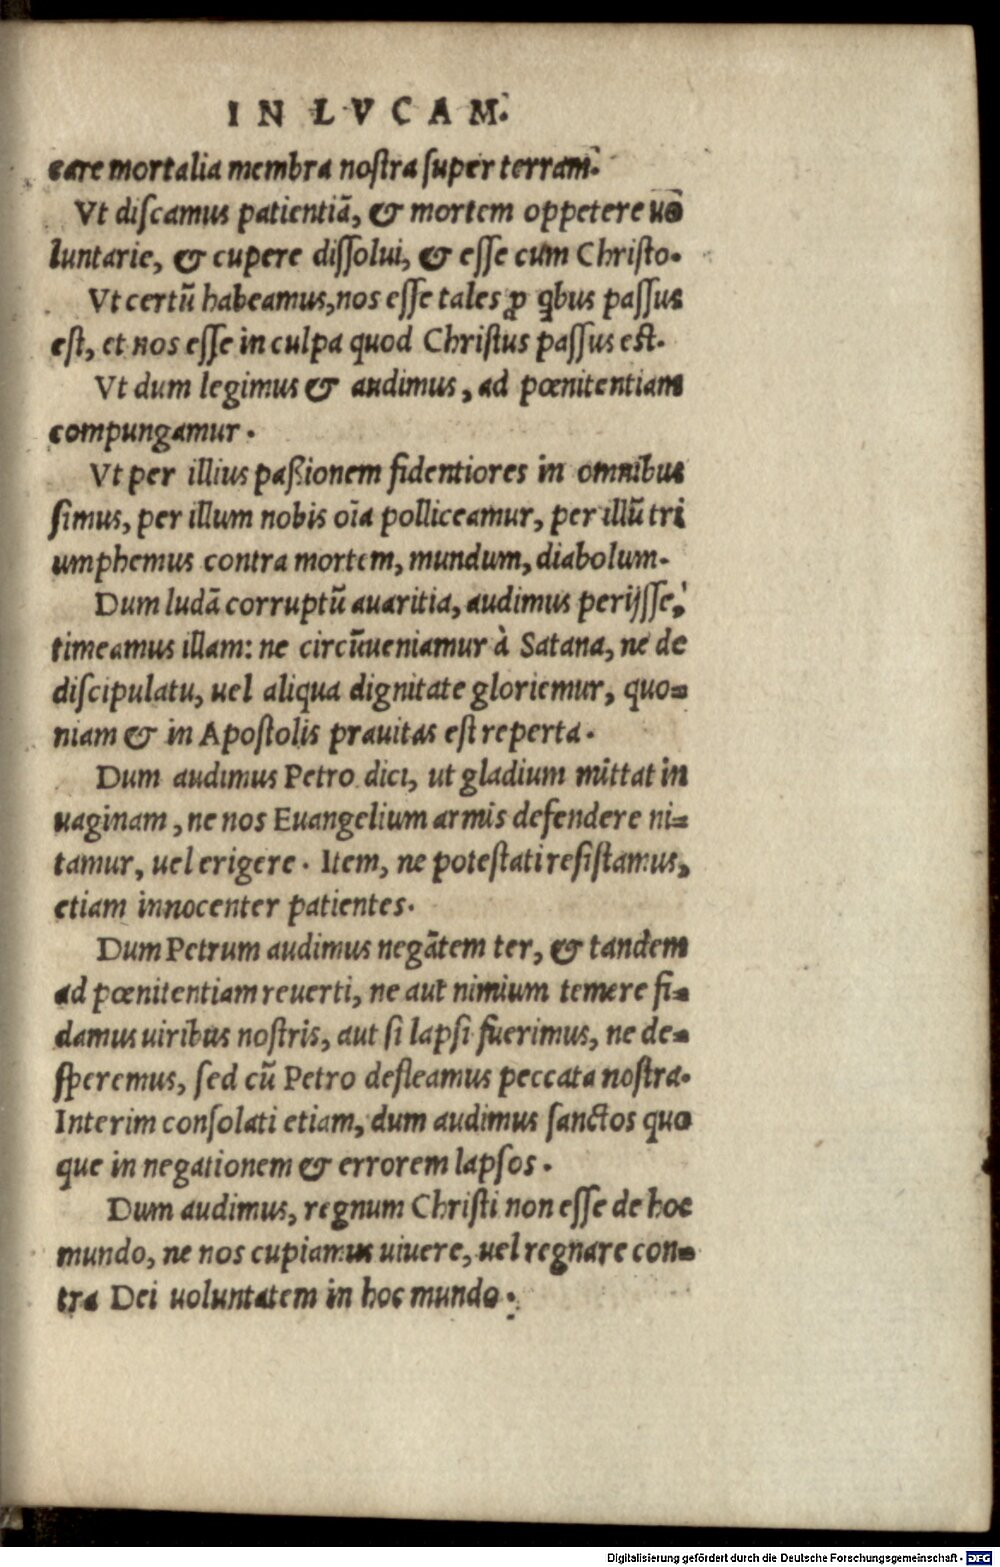 IN LVCAM.
care mortalia membra nostra super terram.
Vt discamus patientiã, & mortem oppetere uo
luntarie, & cupere dissolui, & esse cum Christo.
Vt certũ habeamus, nos esse tales ꝓ qbus passus
est, et nos esse in culpa quod Christus passus est.
Vt dum legimus & audimus, ad pœnitentiam
compungamur.
Vt per illius paßionem fidentiores in omnibus
simus, per illum nobis oĩa polliceamur, per illũ tri
umphemus contra mortem, mundum, diabolum.
Dum Iudã corruptũ auaritia, audimus perijsse,
timeamus illam: ne circũueniamur à Satana, ne de
discipulatu, uel aliqua dignitate gloriemur, quo=
niam & in Apostolis prauitas est reperta.
Dum audimus Petro dici, ut gladium mittat in
uaginam, ne nos Euangelium armis defendere ni=
tamur, uel erigere. Item, ne potestati resistamus,
etiam innocenter patientes.
Dum Petrum audimus negãtem ter, & tandem
ad pœnitentiam reuerti, ne aut nimium temere fi=
damus uiribus nostris, aut si lapsi fuerimus, ne de=
speremus, sed cũ Petro defleamus peccata nostra.
Interim consolati etiam, dum audimus sanctos quo
que in negationem & errorem lapsos.
Dum audimus, regnum Christi non esse de hoc
mundo, ne nos cupiamus uiuere, uel regnare con=
tra Dei uoluntatem in hoc mundo.
Digitalisierung gefördert durch die Deutsche Forschungsgemeinschaft - DFG